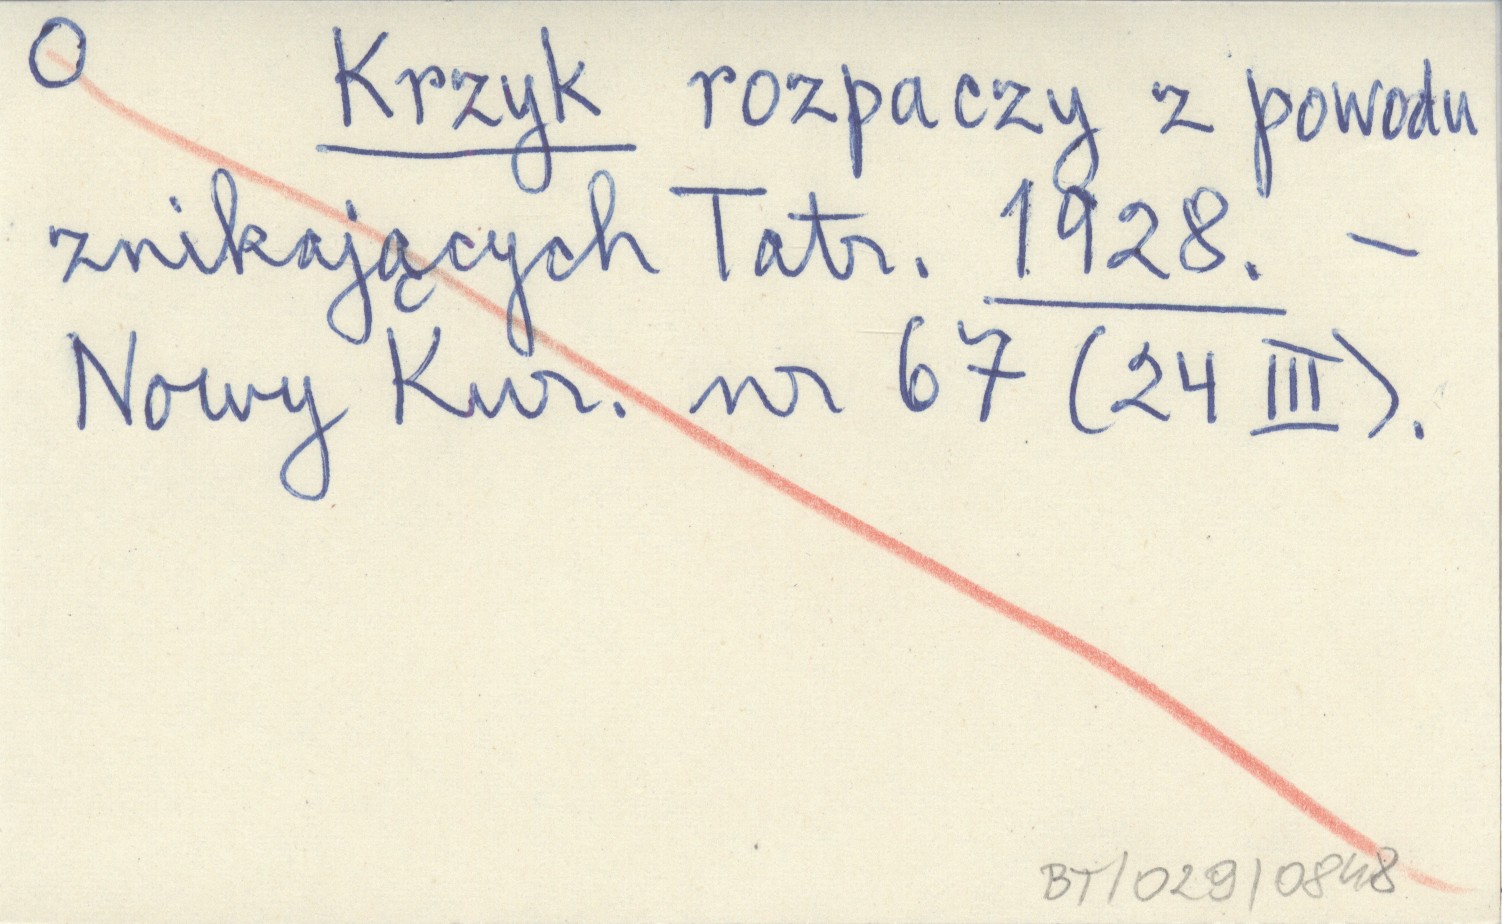 O Krzyk rozpaczy z powodu
znikających Tatr. 1928. –
Nowy Kur. nr 67 (24 III).
BT/029/0848